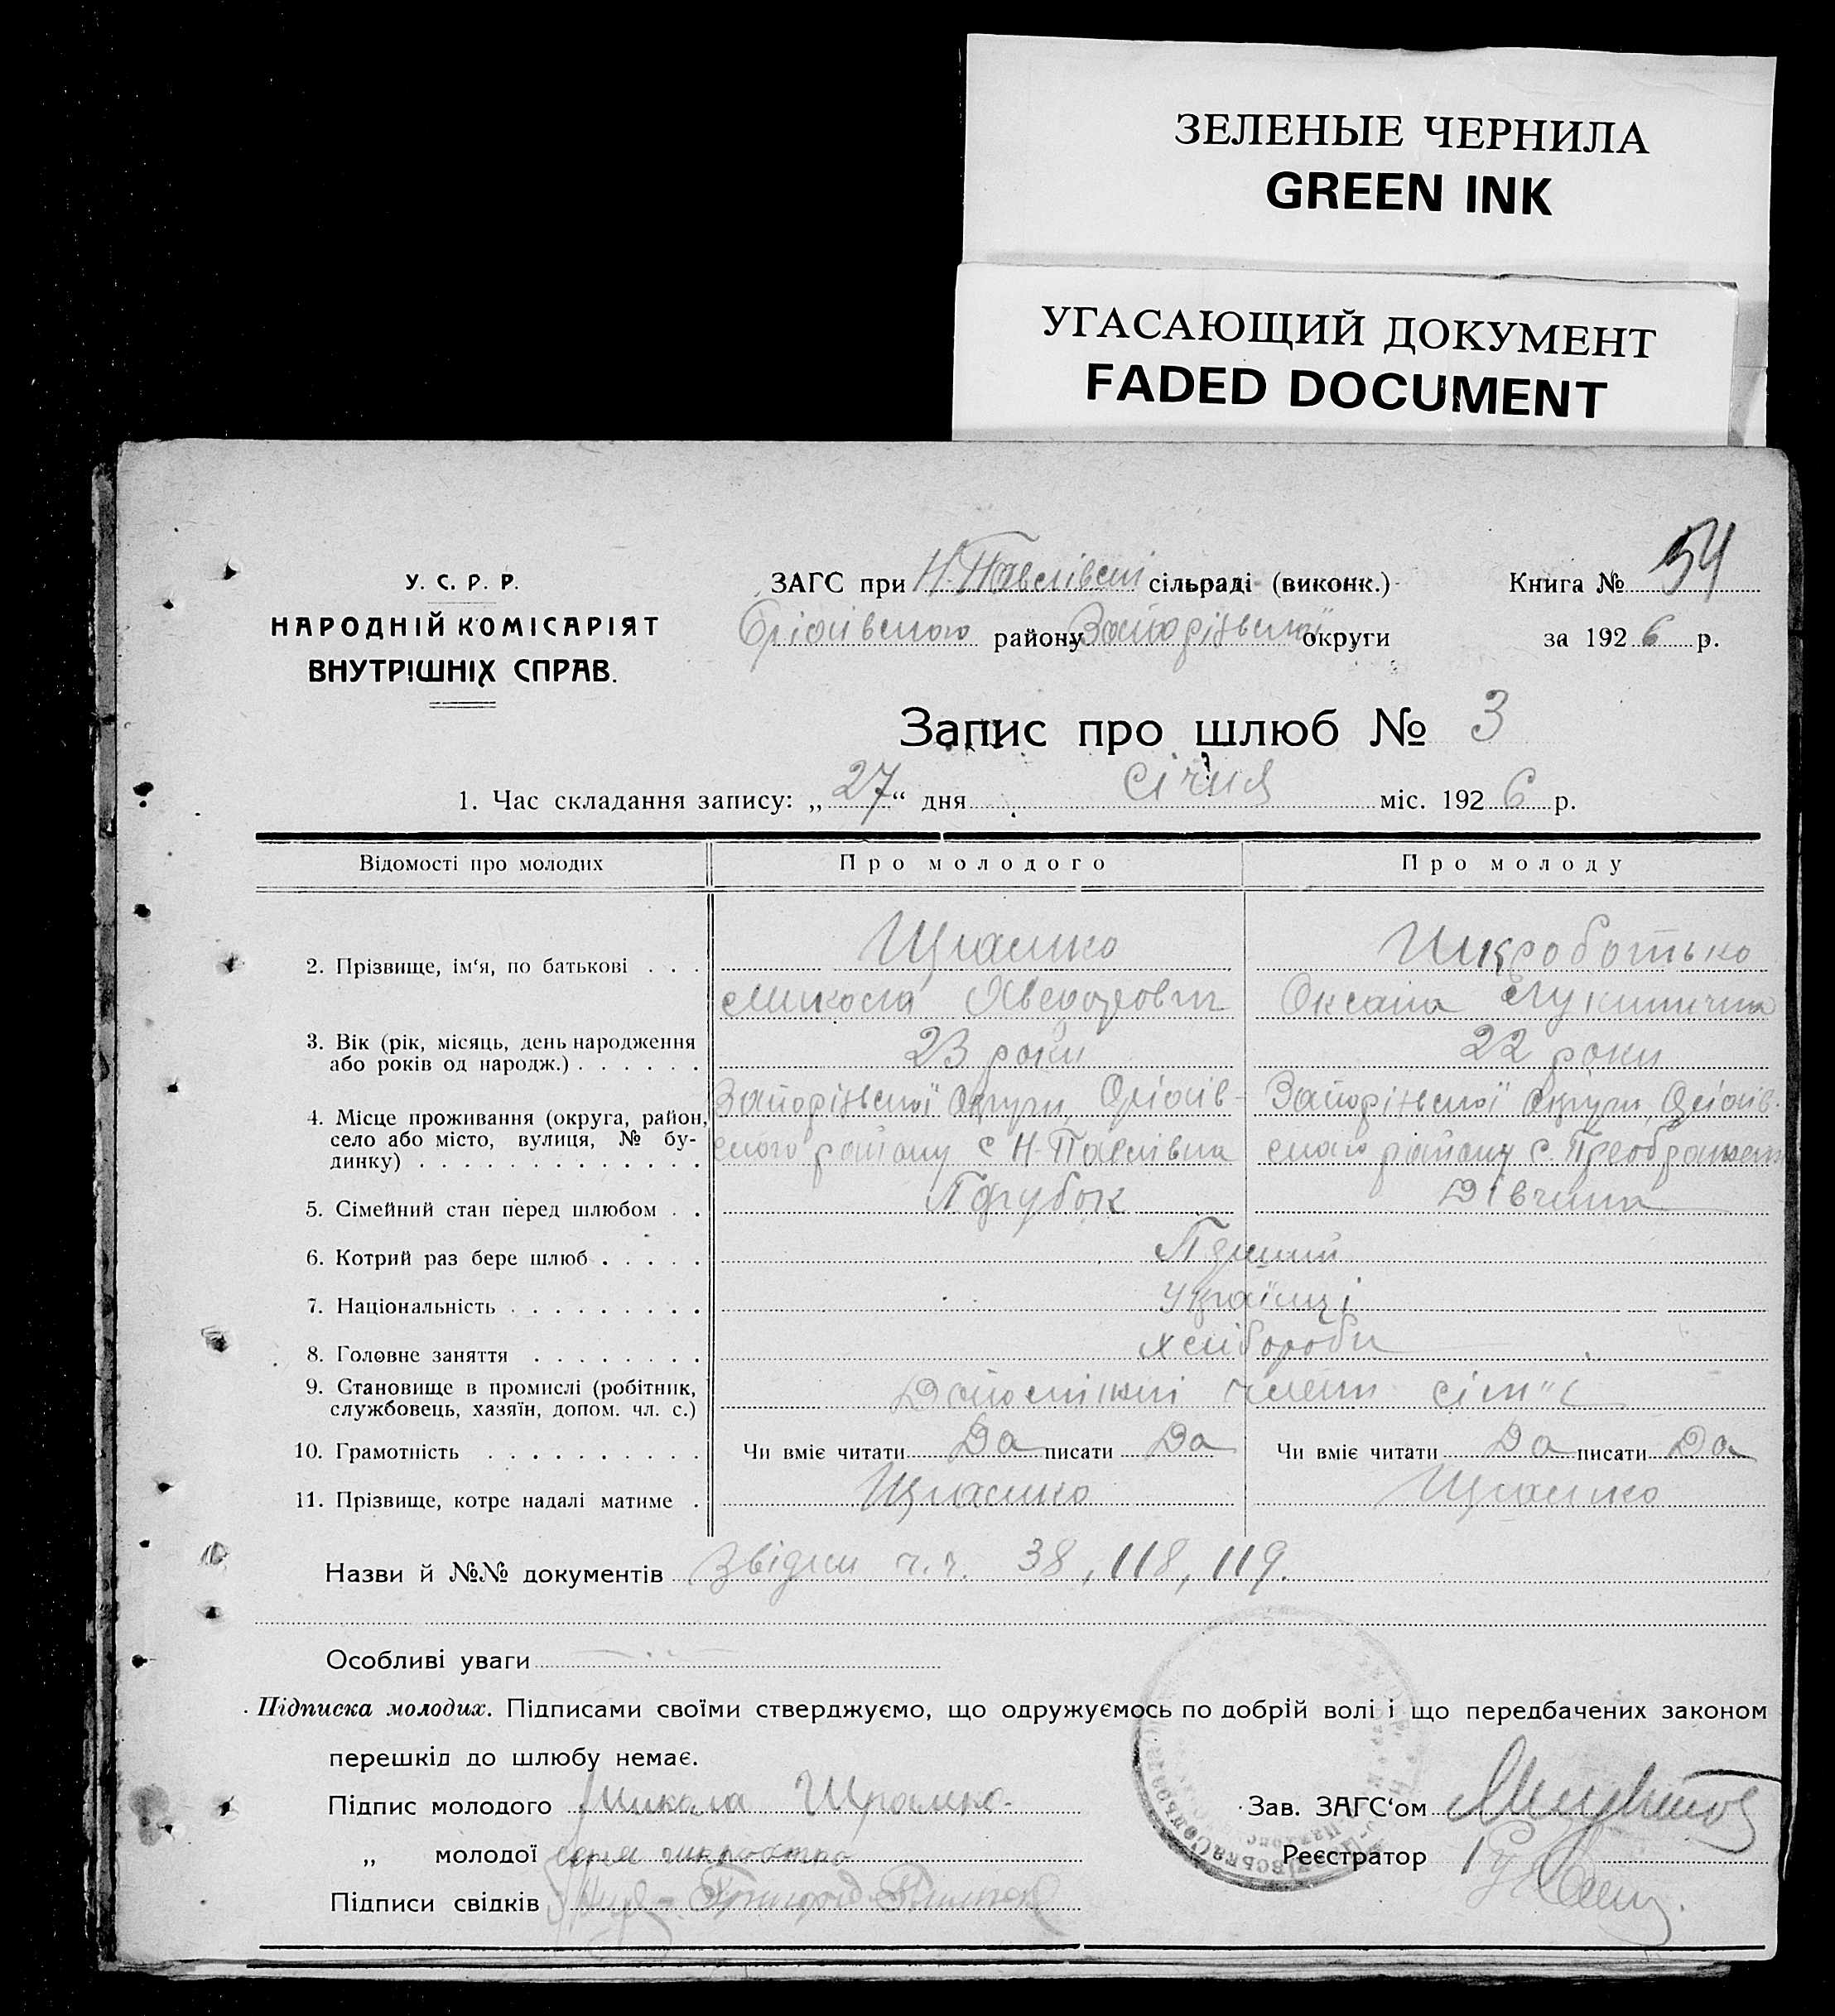 ЗЕЛЕНЫЕ ЧЕРНИЛА
GREEN INK
УГАСАЮЩИЙ ДОКУМЕНТ
FADED DOCUMENT
У. С. Р. Р.
НАРОДНІЙ КОМІСАРІЯТ
ВНУТРІШНІХ СПРАВ.
ЗАГС при Н. Павлівські сільраді (виконк.)
Оріхівського району Запоріжської округи
Книга № 54
за 1926 р.
Запис про шлюб № 3
1. Час складання запису: „27“ дня січня міс. 1926 р.
Відомості про молодих Про молодого Про молоду
2. Прізвище, ім‘я, по батькові . . . Шрамко Шкроботько
Микола Хведорович Оксана Лукинична
3. Вік (рік, місяць, день народження
або років од народж.) . . . . . . 23 роки 22 роки
4. Місце проживання (округа, район, Запоріжської Округи, Оріхів- Запоріжської Округи, Оріхів-
село або місто, вулиця, № бу- ського району с. Н-Павлівка ського району с.
динку) . . . . . . . . . . . . .
5. Сімейний стан перед шлюбом . . Парубок Дівчина
6. Котрий раз бере шлюб . . . . . Перший
7. Національність . . . . . . . . . Українці
8. Головне заняття . . . . . . . . хлібороби
9. Становище в промислі (робітник,
службовець, хазяїн, допом. чл. с.) члени
10. Грамотність . . . . . . . . . . Чи вміє читати Да писати Да Чи вміє читати Да писати Да
11. Прізвище, котре надалі матиме . Шрамко Шрамко
Назви й №№ документів ч.ч. 38, 118, 119.
Особливі уваги
Підписка молодих. Підписами своїми стверджуємо, що одружуємось по добрій волі і що передбачених законом
перешкід до шлюбу немає.
Підпис молодого Микола Шрамко.
„ молодої
Підписи свідків
Зав. ЗАГС‘ом
Реєстратор